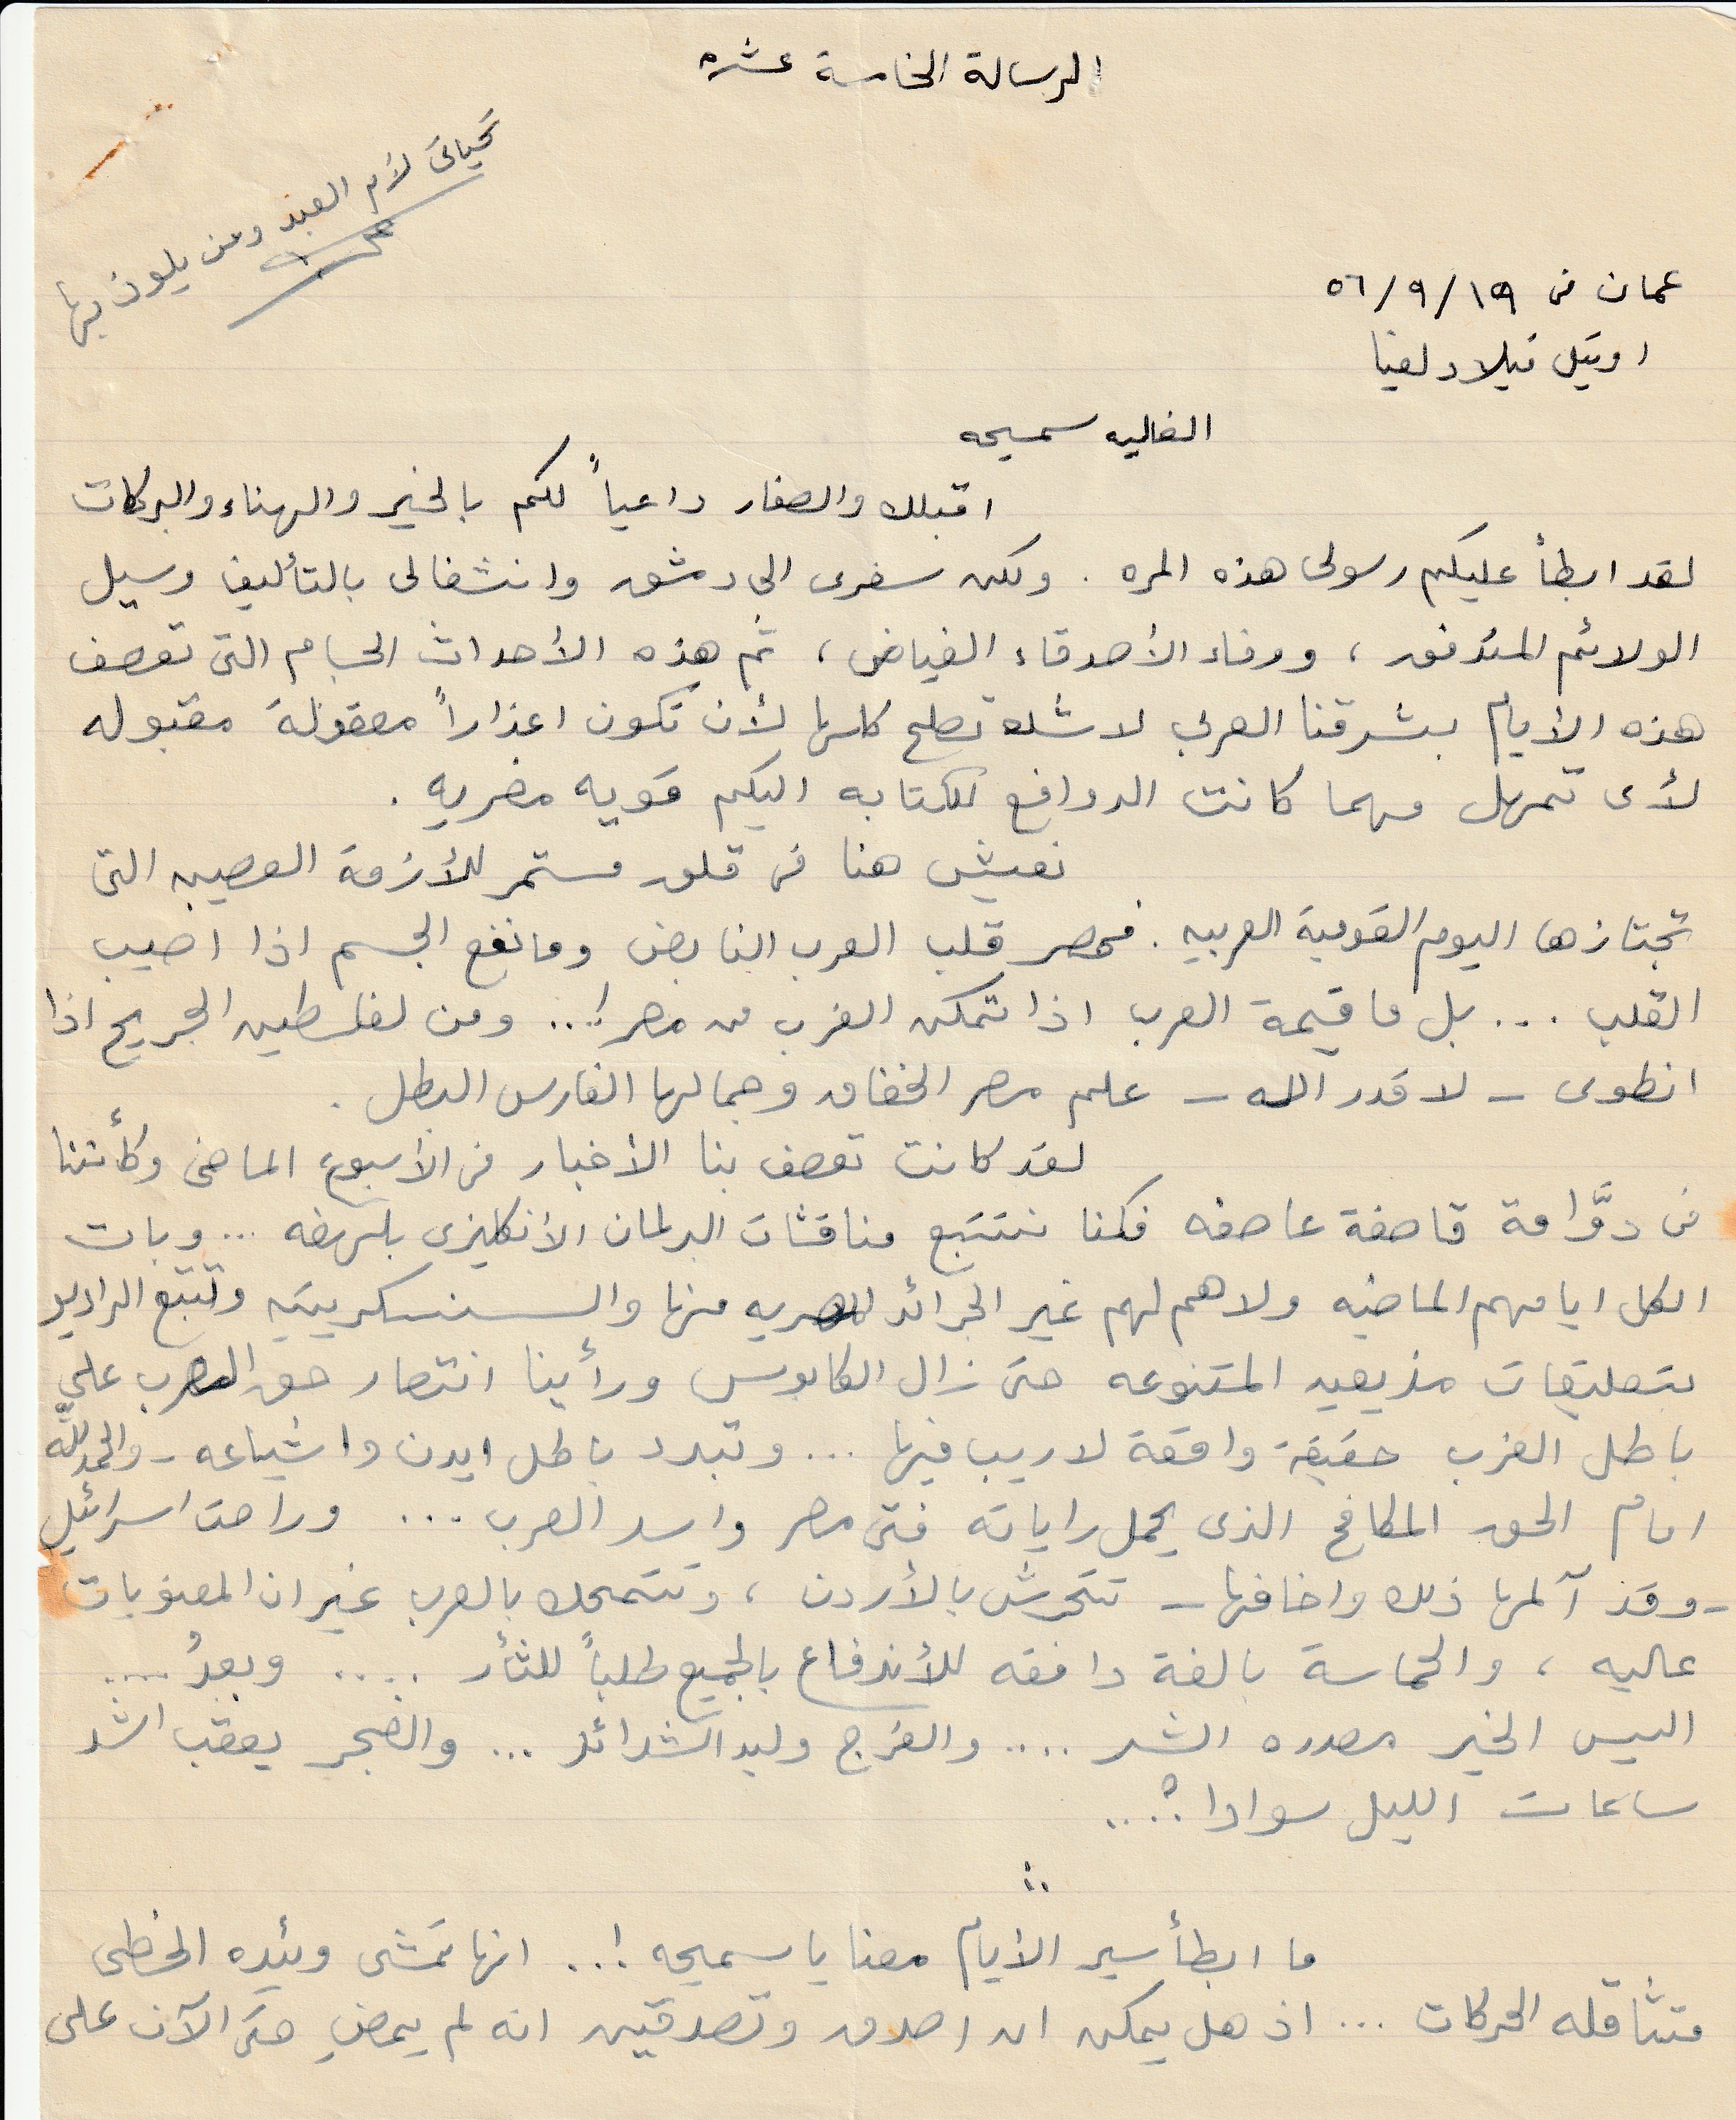 الرسالة الخامسة عشره
تحياتي لأم العبد ومن يلوذ بها
عمان في ١٩/٩/٥٦
اوتيل فيلادلفيا
الغاليه سميحه
اقبلك والصغار داعياً لكم بالخير والهناء والبركات
لقد ابطأ عليكم رسولي هذه المره . ولكن سفرى الى دمشق وانشغالى بالتأليف وسيل
الولائم المتدفق ، ووفاء الأصدقاء الفياض ، ثم هذه الأحداث الجسام التى تعصف
هذه الأيام بشرقنا العربي لا شك تصلح كلها لأن تكون اعذاراً معقولة مقبوله
لأى تمهل مهما كانت الدوافع للكتابه اليكم قويه مغريه .
نعيش هنا فى قلق مستمر للأزمة العصيبه التى
تجتازها اليوم القومية العربيه . فمصر قلب العرب النابض وما نفع الجسم اذا اصيب
القلب ... بل ما قيمة العرب اذا تمكن الغرب من مصر !... ومن لفلسطين الجريح اذا
انطوى - لا قدر الله - علم مصر الخفاق وجمالها الفارس البطل .
لقد كانت تعصف بنا الأخبار فى الأسبوع الماضى وكأننا
فى دوَّامة قاصفة عاصفه فكنا نتتبع مناقشات البرلمان الأنكليزى بلهفه ... وبات
الكل ايامهم الماضيه ولا هم لهم غير الجرائد المصريه منها والـسنسكريتيه وتتبع الراديو
بتعليقات مذيعيه المتنوعه حتى زال الكابوس ورأينا انتصار حق العرب على
باطل الغرب حقيقة واقعة لا ريب فيها ... وتبدد باطل ايدن واشياعه - والحمد لله
امام الحق المكافح الذى يحمل راياته فتى مصر واسد العرب ... وراحت اسرائيل
- وقد آلمها ذلك واخافها - تتحرش بالأردن ، وتتمحك بالعرب غير ان المعنويات
عاليه ، والحماسة بالغة دافعه للأندفاع بالجميع طلباً للثأر .... وبعدُ ....
اليس الخير مصدره الشر .... والفرج وليد الشدائد ... والفجر يعقب اشد
ساعات الليل سوادا ؟ ...
ما ابطأ سير الأيام معنا يا سميحه !... انها تمشى وئيده الخطى
متثاقله الحركات ... اذ هل يمكن ان اصدق وتصدقين انه لم يمضِ حتى الآن على